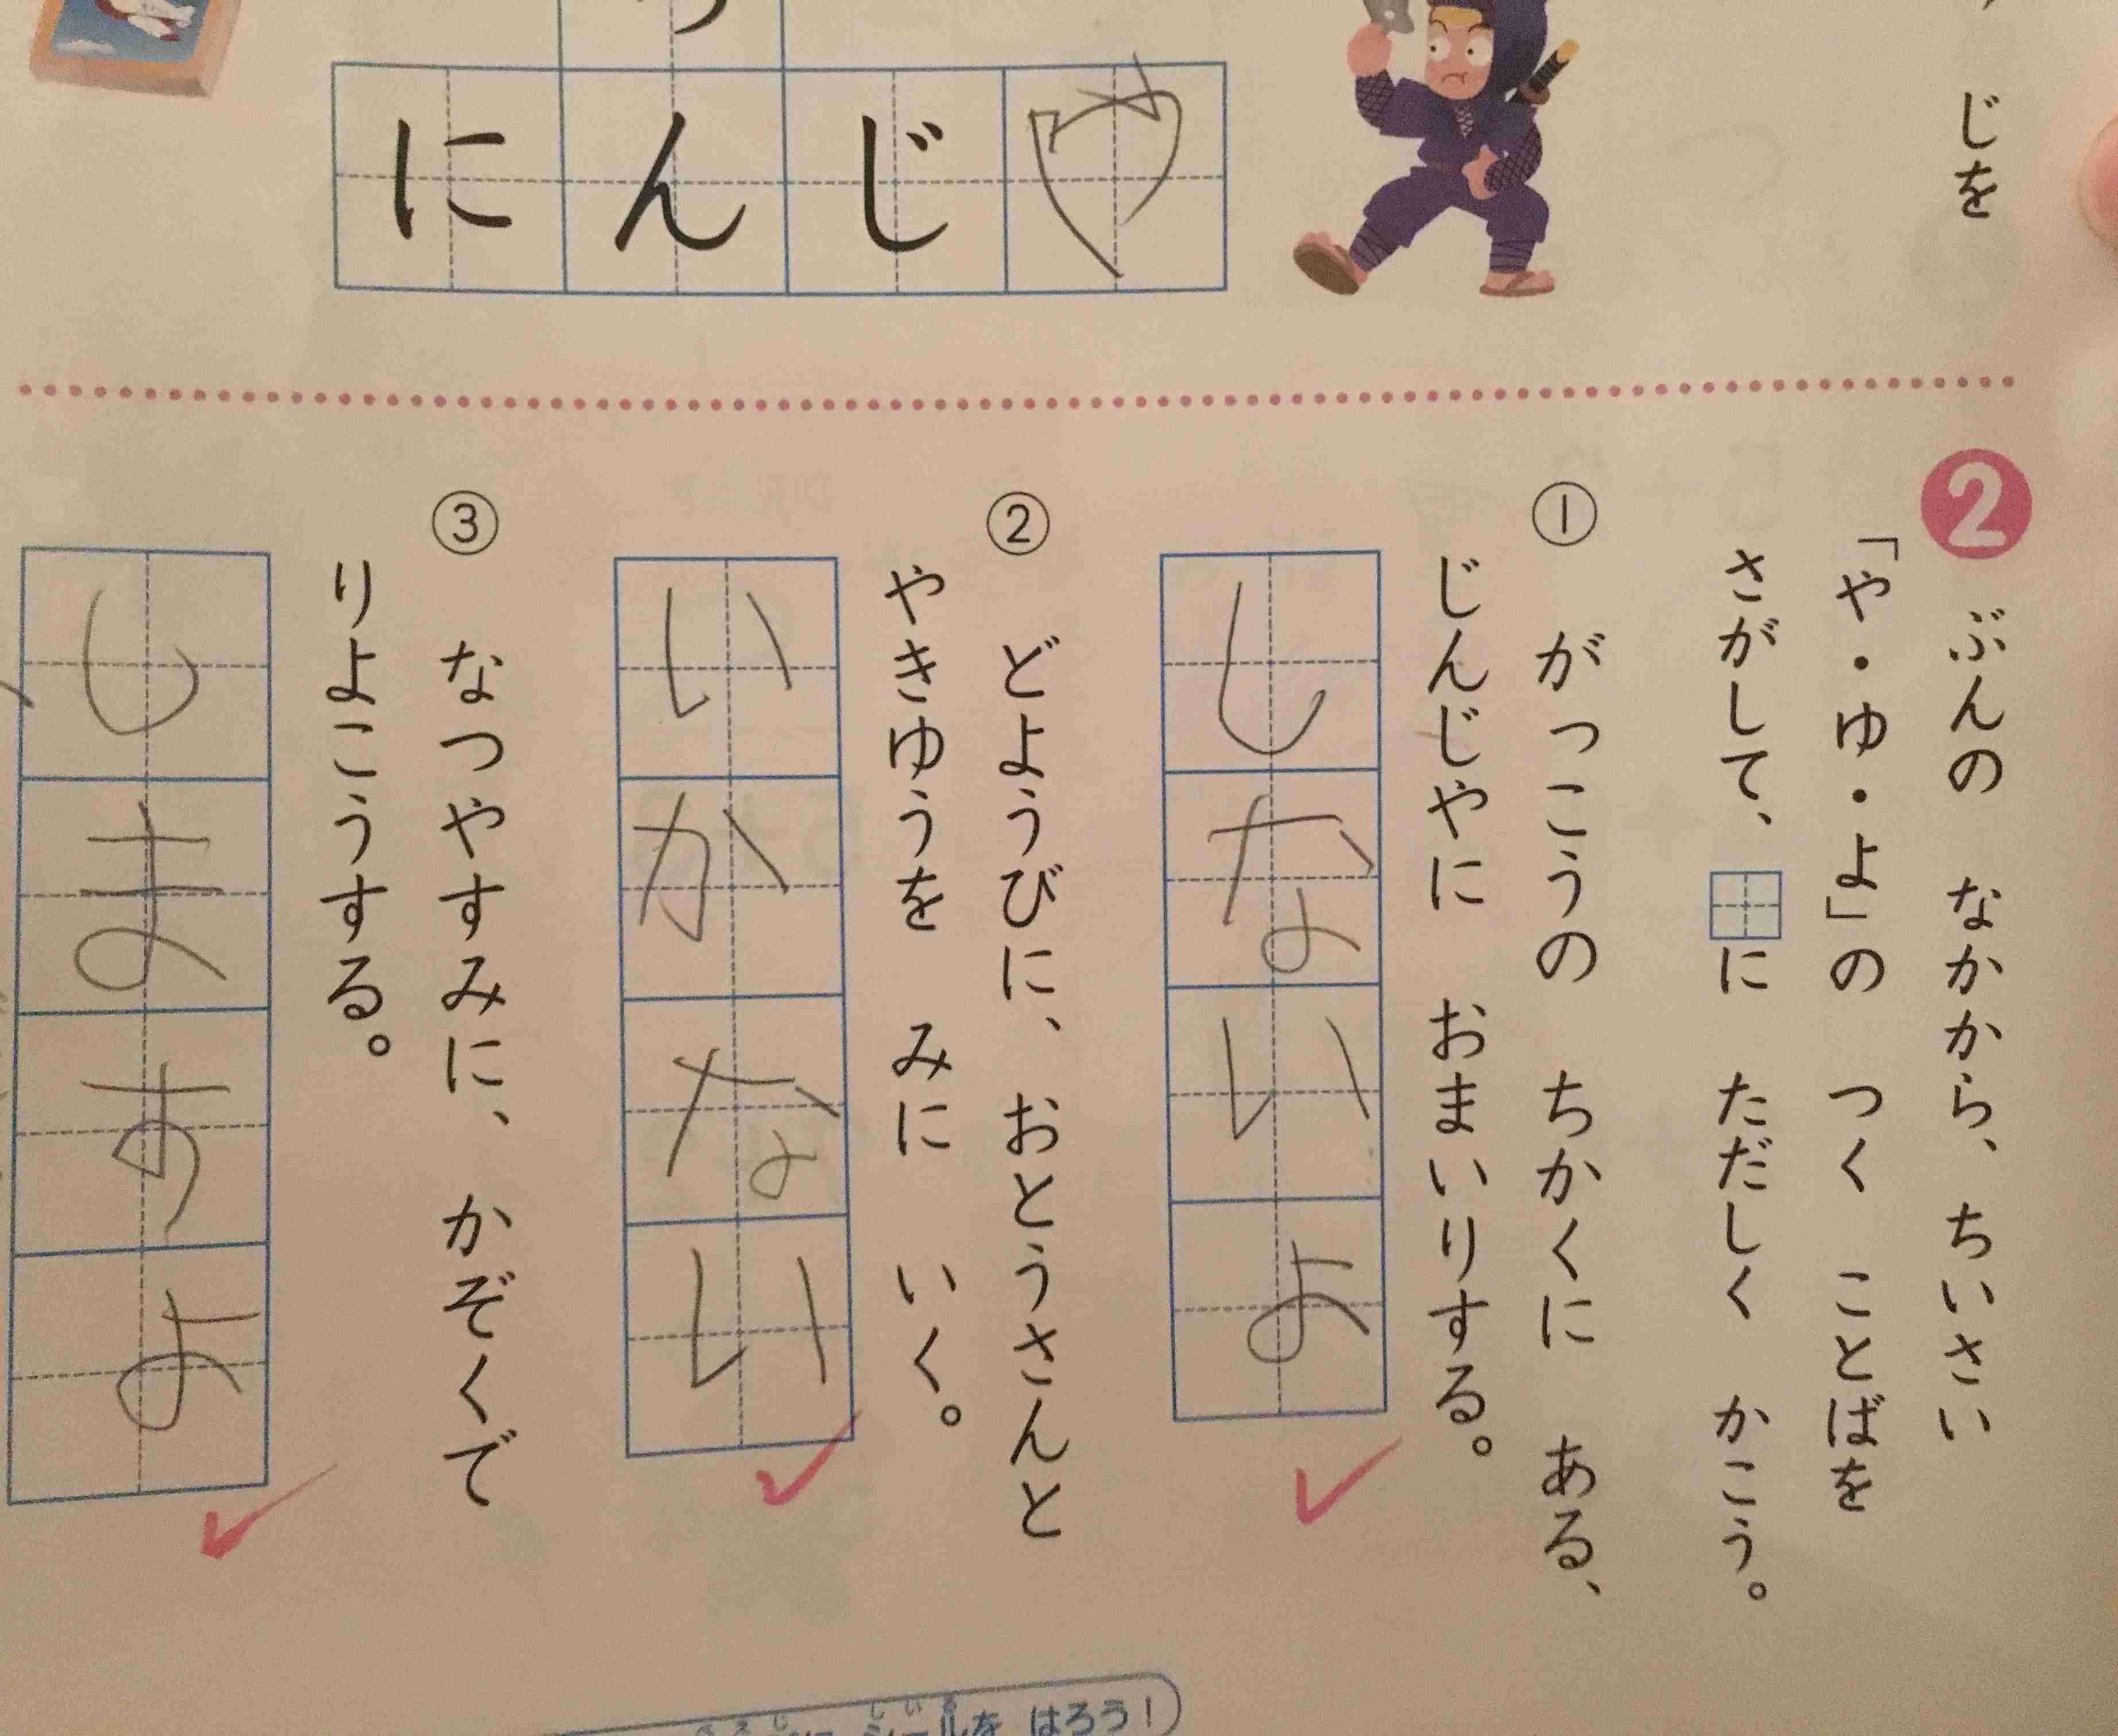 じを
っ
にんじゃ
2 ぶんの なかから、ちいさい
「や・ゆ・よ」の つく ことばを
さがして、に ただしく かこう。
① がっこうの ちかくに ある、
じんじやに おまいりする。
しないよ
② どようびに、おとうさんと
やきゆうを みに いく。
いかない
③ なつやすみに、かぞくで
りよこうする。
しますよ
シールを はろう!
しい